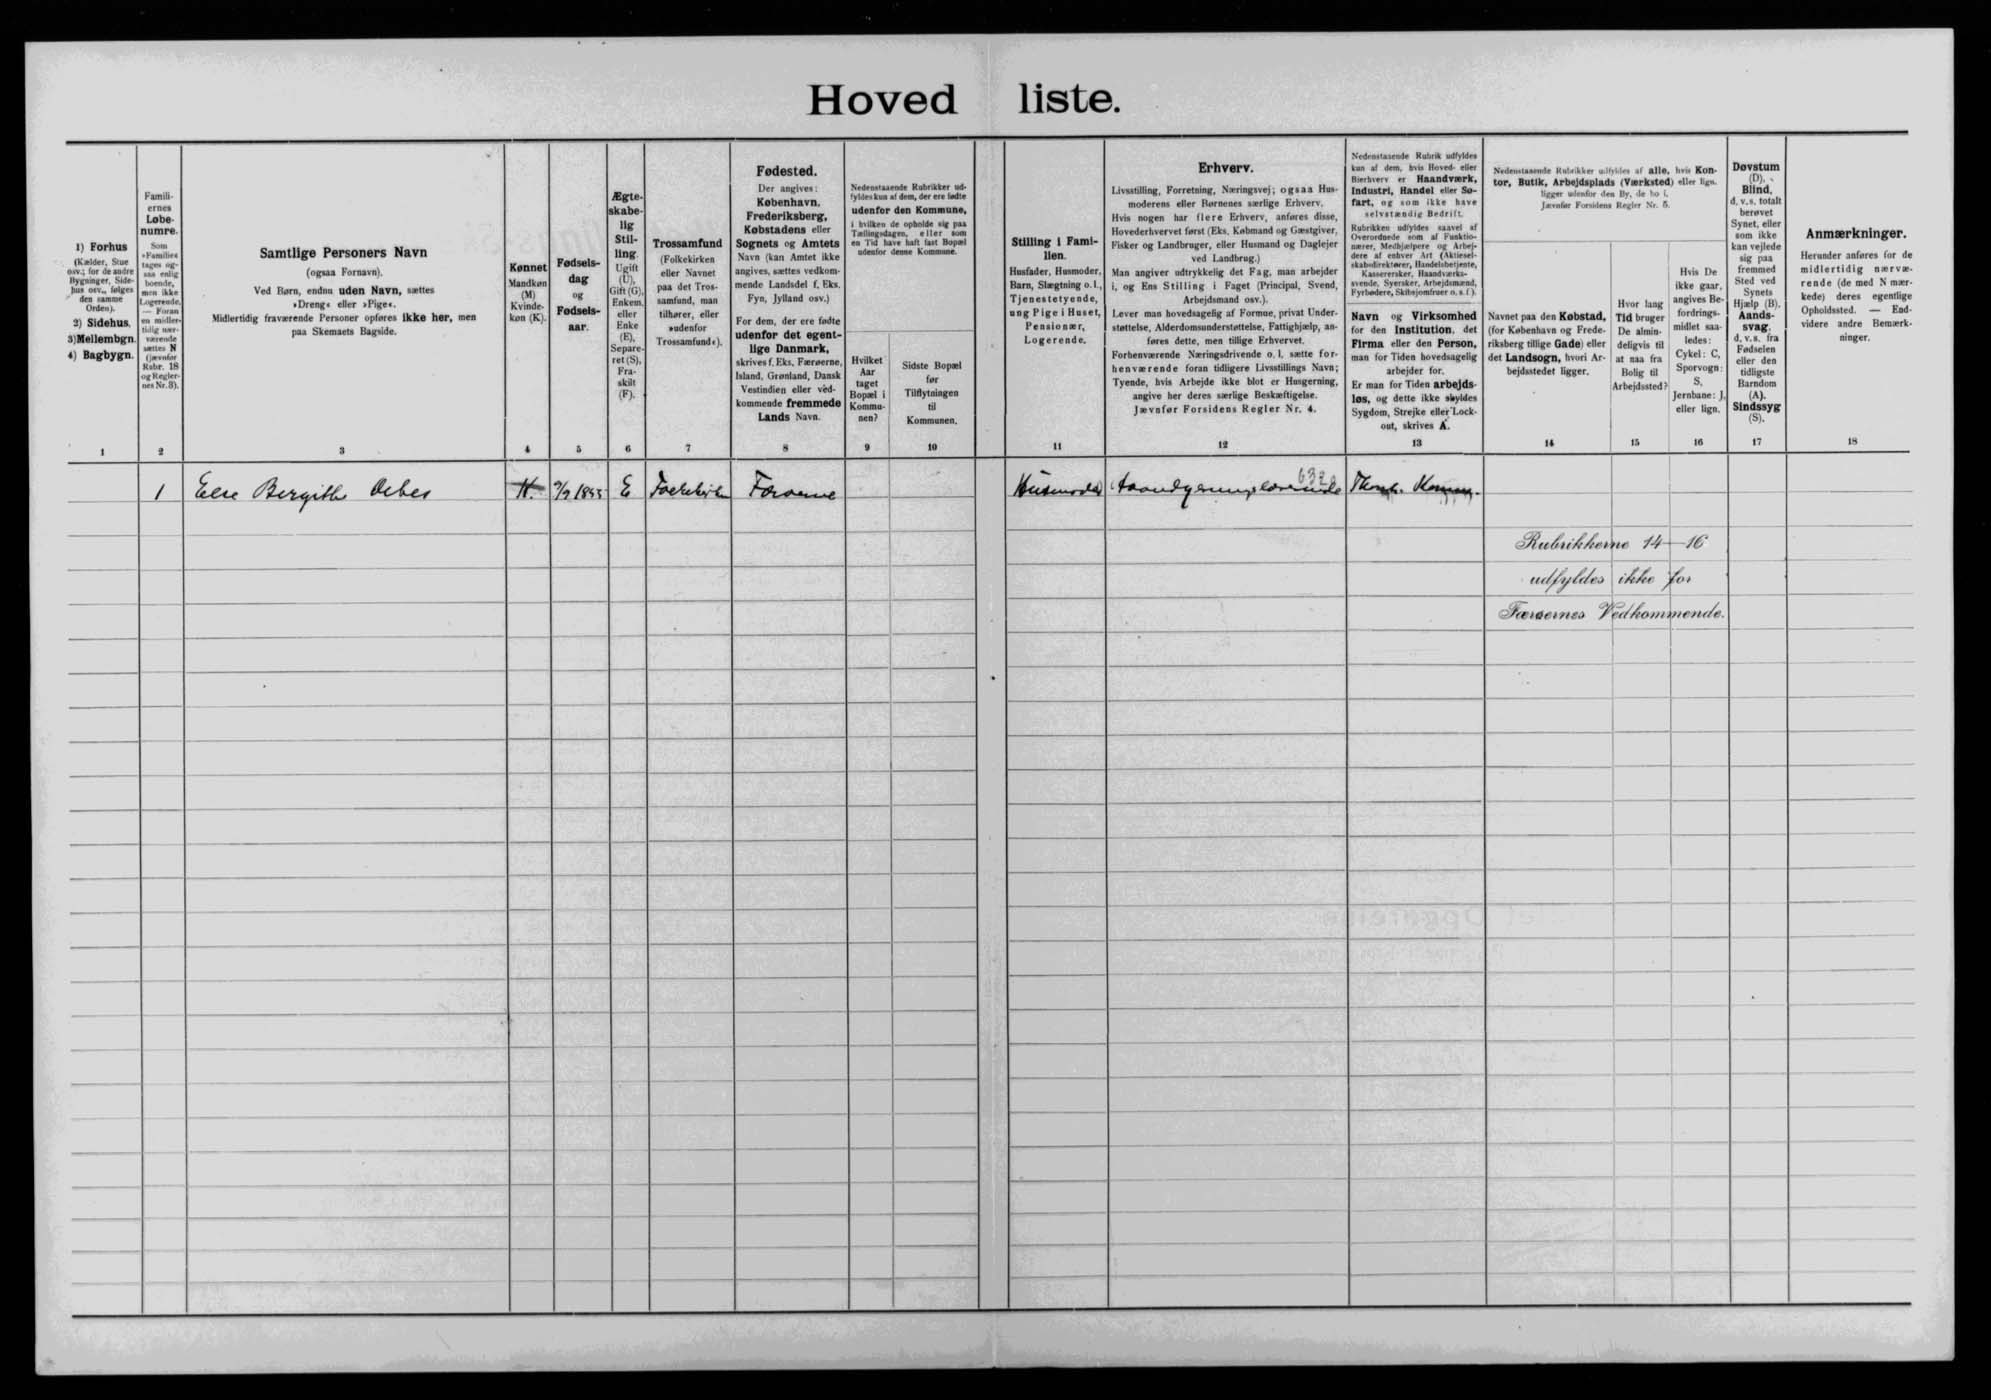 Hovedliste.
1) Forhus
(Kælder, Stue
osv.; for de andre
Bygninger, Side-
hus osv., følges
den samme
Orden).
2) Sidehus,
3) Mellembgn.
4) Bagbygn.
1
Famili-
ernes
Løbe-
numre.
Som
»Familie«
tages og-
saa enlig
boende,
men ikke
Logerende.
— Foran
en midler-
tidig nær-
værende
sættes N
(jævnfør
Rubr. 18
og Regler-
nes Nr. 3).
2
Samtlige Personers Navn
(ogsaa Fornavn).
Ved Børn, endnu uden Navn, sættes
»Dreng« eller »Pige«.
Midlertidig fraværende Personer opføres ikke her, men
paa Skemaets Bagside.
3
Kønnet
Mandkøn
(M)
Kvinde-
køn (K).
4
Fødsels-
dag
og
Fødsels-
aar.
5
Ægte-
skabe-
lig
Stil-
ling.
Ugift
(U),
Gift (G),
Enkem.
eller
Enke
(E),
Separe-
ret (S),
Fra-
skilt
(F).
6
Trossamfund
(Folkekirken
eller Navnet
paa det Tros-
samfund, man
tilhører, eller
»udenfor
Trossamfund«).
7
Fødested.
Der angives:
København,
Frederiksberg,
Købstadens eller
Sognets og Amtets
Navn (kan Amtet ikke
angives, sættes vedkom-
mende Landsdel f. Eks.
Fyn, Jylland osv.)
For dem, der ere fødte
udenfor det egent-
lige Danmark,
skrives f. Eks. Færøerne,
Island, Grønland, Dansk
Vestindien eller ved-
kommende fremmede
Lands Navn.
8
Nedenstaaende Rubrikker ud-
fyldes kun af dem, der ere fødte
udenfor den Kommune,
i hvilken de opholde sig paa
Tællingsdagen, eller som
en Tid have haft fast Bopæl
udenfor denne Kommune.
Hvilket
Aar
taget
Bopæl i
Kommu-
nen?
9
Sidste Bopæl
før
Tilflytningen
til
Kommunen.
10
Stilling i Fami-
lien.
Husfader, Husmoder,
Barn, Slægtning o. l.,
Tjenestetyende,
ung Pige i Huset,
Pensionær,
Logerende.
11
Erhverv.
Livsstilling, Forretning, Næringsvej; ogsaa Hus-
moderens eller Børnenes særlige Erhverv.
Hvis nogen har flere Erhverv, anføres disse,
Hovederhvervet først (Eks. Købmand og Gæstgiver,
Fisker og Landbruger, eller Husmand og Daglejer
ved Landbrug.)
Man angiver udtrykkelig det Fag, man arbejder
i, og Ens Stilling i Faget (Principal, Svend,
Arbejdsmand osv.).
Lever man hovedsagelig af Formue, privat Under-
støttelse, Alderdomsunderstøttelse, Fattighjælp, an-
føres dette, men tillige Erhvervet.
Forhenværende Næringsdrivende o. l. sætte for-
henværende foran tidligere Livsstillings Navn;
Tyende, hvis Arbejde ikke blot er Husgerning,
angive her deres særlige Beskæftigelse.
Jævnfør Forsidens Regler Nr. 4.
12
Nedenstaaende Rubrik udfyldes
kun af dem, hvis Hoved- eller
Bierhverv er Haandværk,
Industri, Handel eller Sø-
fart, og som ikke have
selvstændig Bedrift.
Rubrikken udfyldes saavel af
Overordnede som af Funktio-
nærer, Medhjælpere og Arbej-
dere af enhver Art (Aktiesel-
skabsdirektører, Handelsbetjente,
Kasserersker, Haandværks-
svende, Syersker, Arbejdsmænd,
Fyrbødere, Skibsjomfruer o. s. f.).
Navn og Virksomhed
for den Institution, det
Firma eller den Person,
man for Tiden hovedsagelig
arbejder for.
Er man for Tiden arbejds-
løs, og dette ikke skyldes
Sygdom, Strejke eller Lock-
out, skrives A.
13
Nedenstaaende Rubrikker udfyldes af alle, hvis Kon-
tor, Butik, Arbejdsplads (Værksted) eller lign.
ligger udenfor den By, de bo i.
Jævnfør Forsidens Regler Nr. 5.
Navnet paa den Købstad,
(for København og Frede-
riksberg tillige Gade) eller
det Landsogn, hvori Ar-
bejdsstedet ligger.
14
Hvor lang
Tid bruger
De almin-
deligvis til
at naa fra
Bolig til
Arbejdssted?
15
Hvis De
ikke gaar,
angives Be-
fordrings-
midlet saa-
ledes:
Cykel: C,
Sporvogn:
S,
Jernbane: J,
eller lign.
16
Døvstum
(D),
Blind,
d. v. s. totalt
berøvet
Synet, eller
som ikke
kan vejlede
sig paa
fremmed
Sted ved
Synets
Hjælp (B),
Aands-
svag,
d. v. s. fra
Fødselen
eller den
tidligste
Barndom
(A).
Sindssyg
(S).
17
Anmærkninger.
Herunder anføres for de
midlertidig nærvæ-
rende (de med N mær-
kede) deres egentlige
Opholdssted. — End-
videre andre Bemærk-
ninger.
18
1 Else Bergithe K. E Folkekirken Færøerne Husmoder Haandgerningslærerinde 632
Rubrikkerne 14—16
udfyldes ikke for
Færøernes Vedkommende.